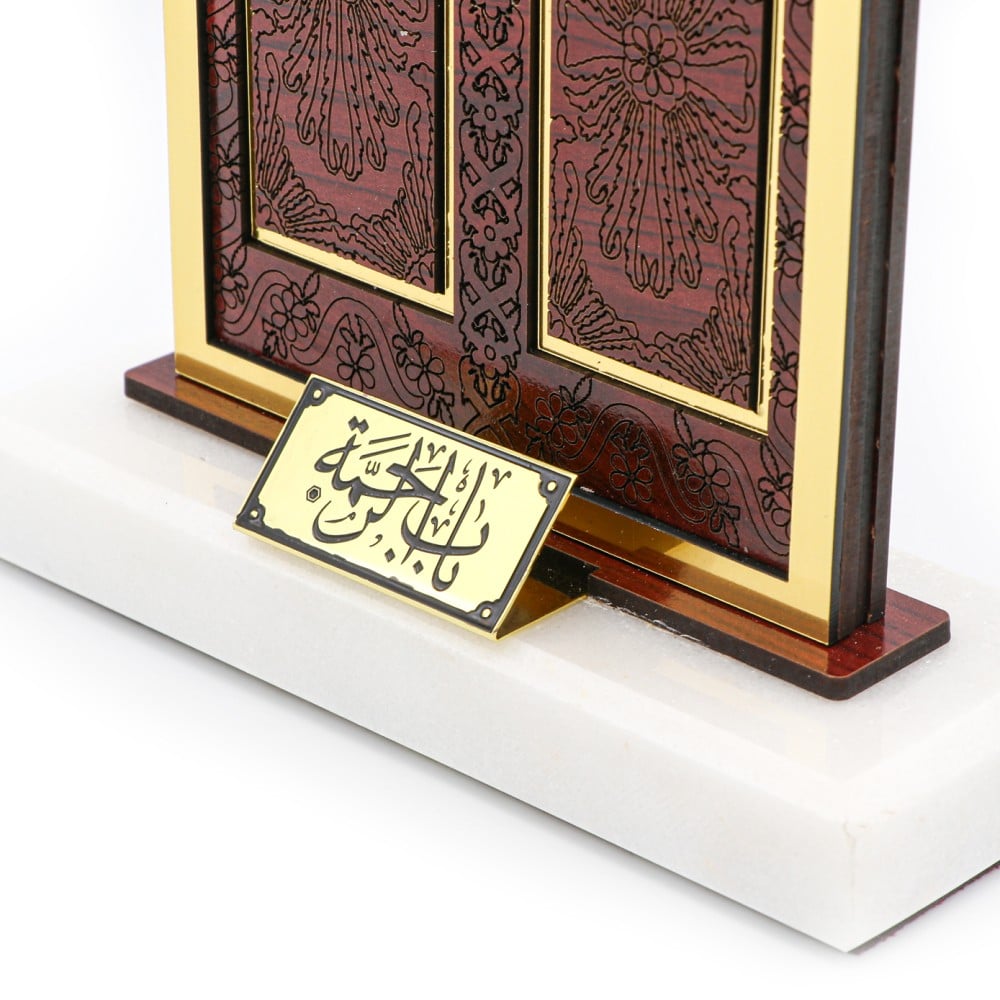 باب الرحمة